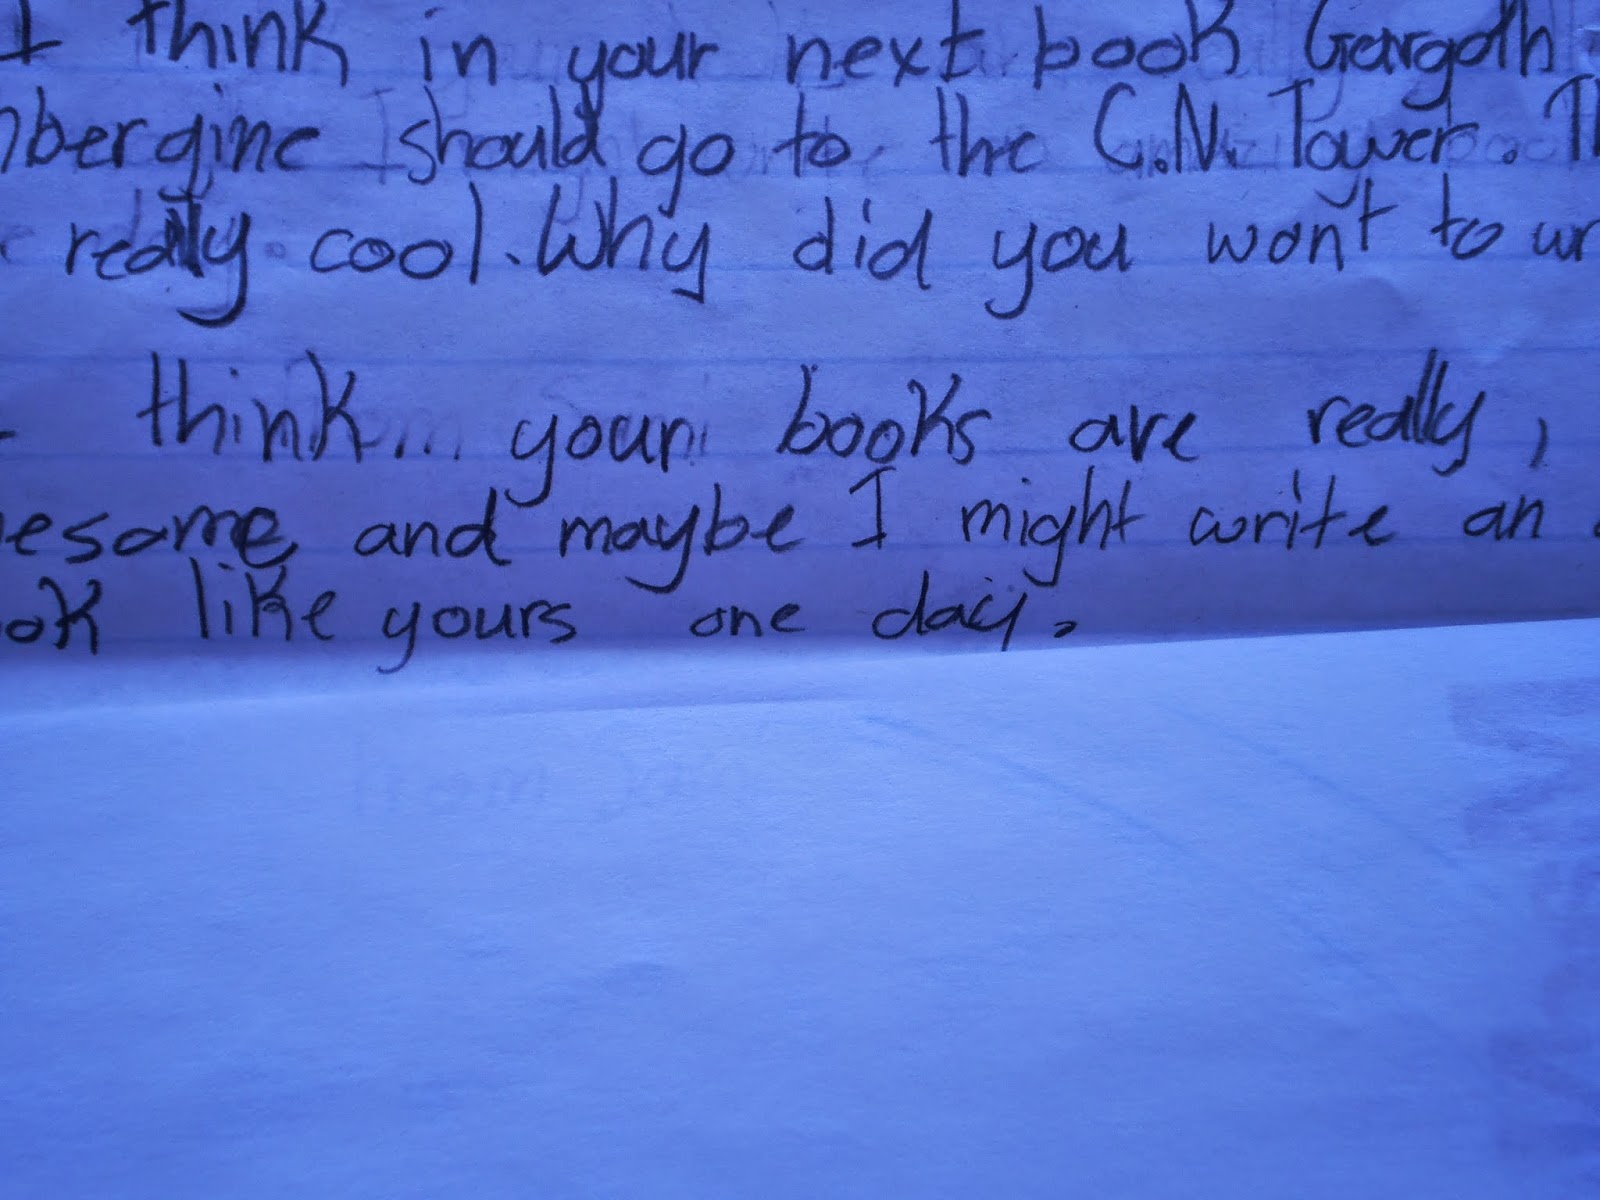 I think in your next book Gargoth
mbergine should go to the C.N. Tower. Th
really cool. Why did you won't to wr
I think your books are really,
esome and maybe I might write an
ook like yours one day.